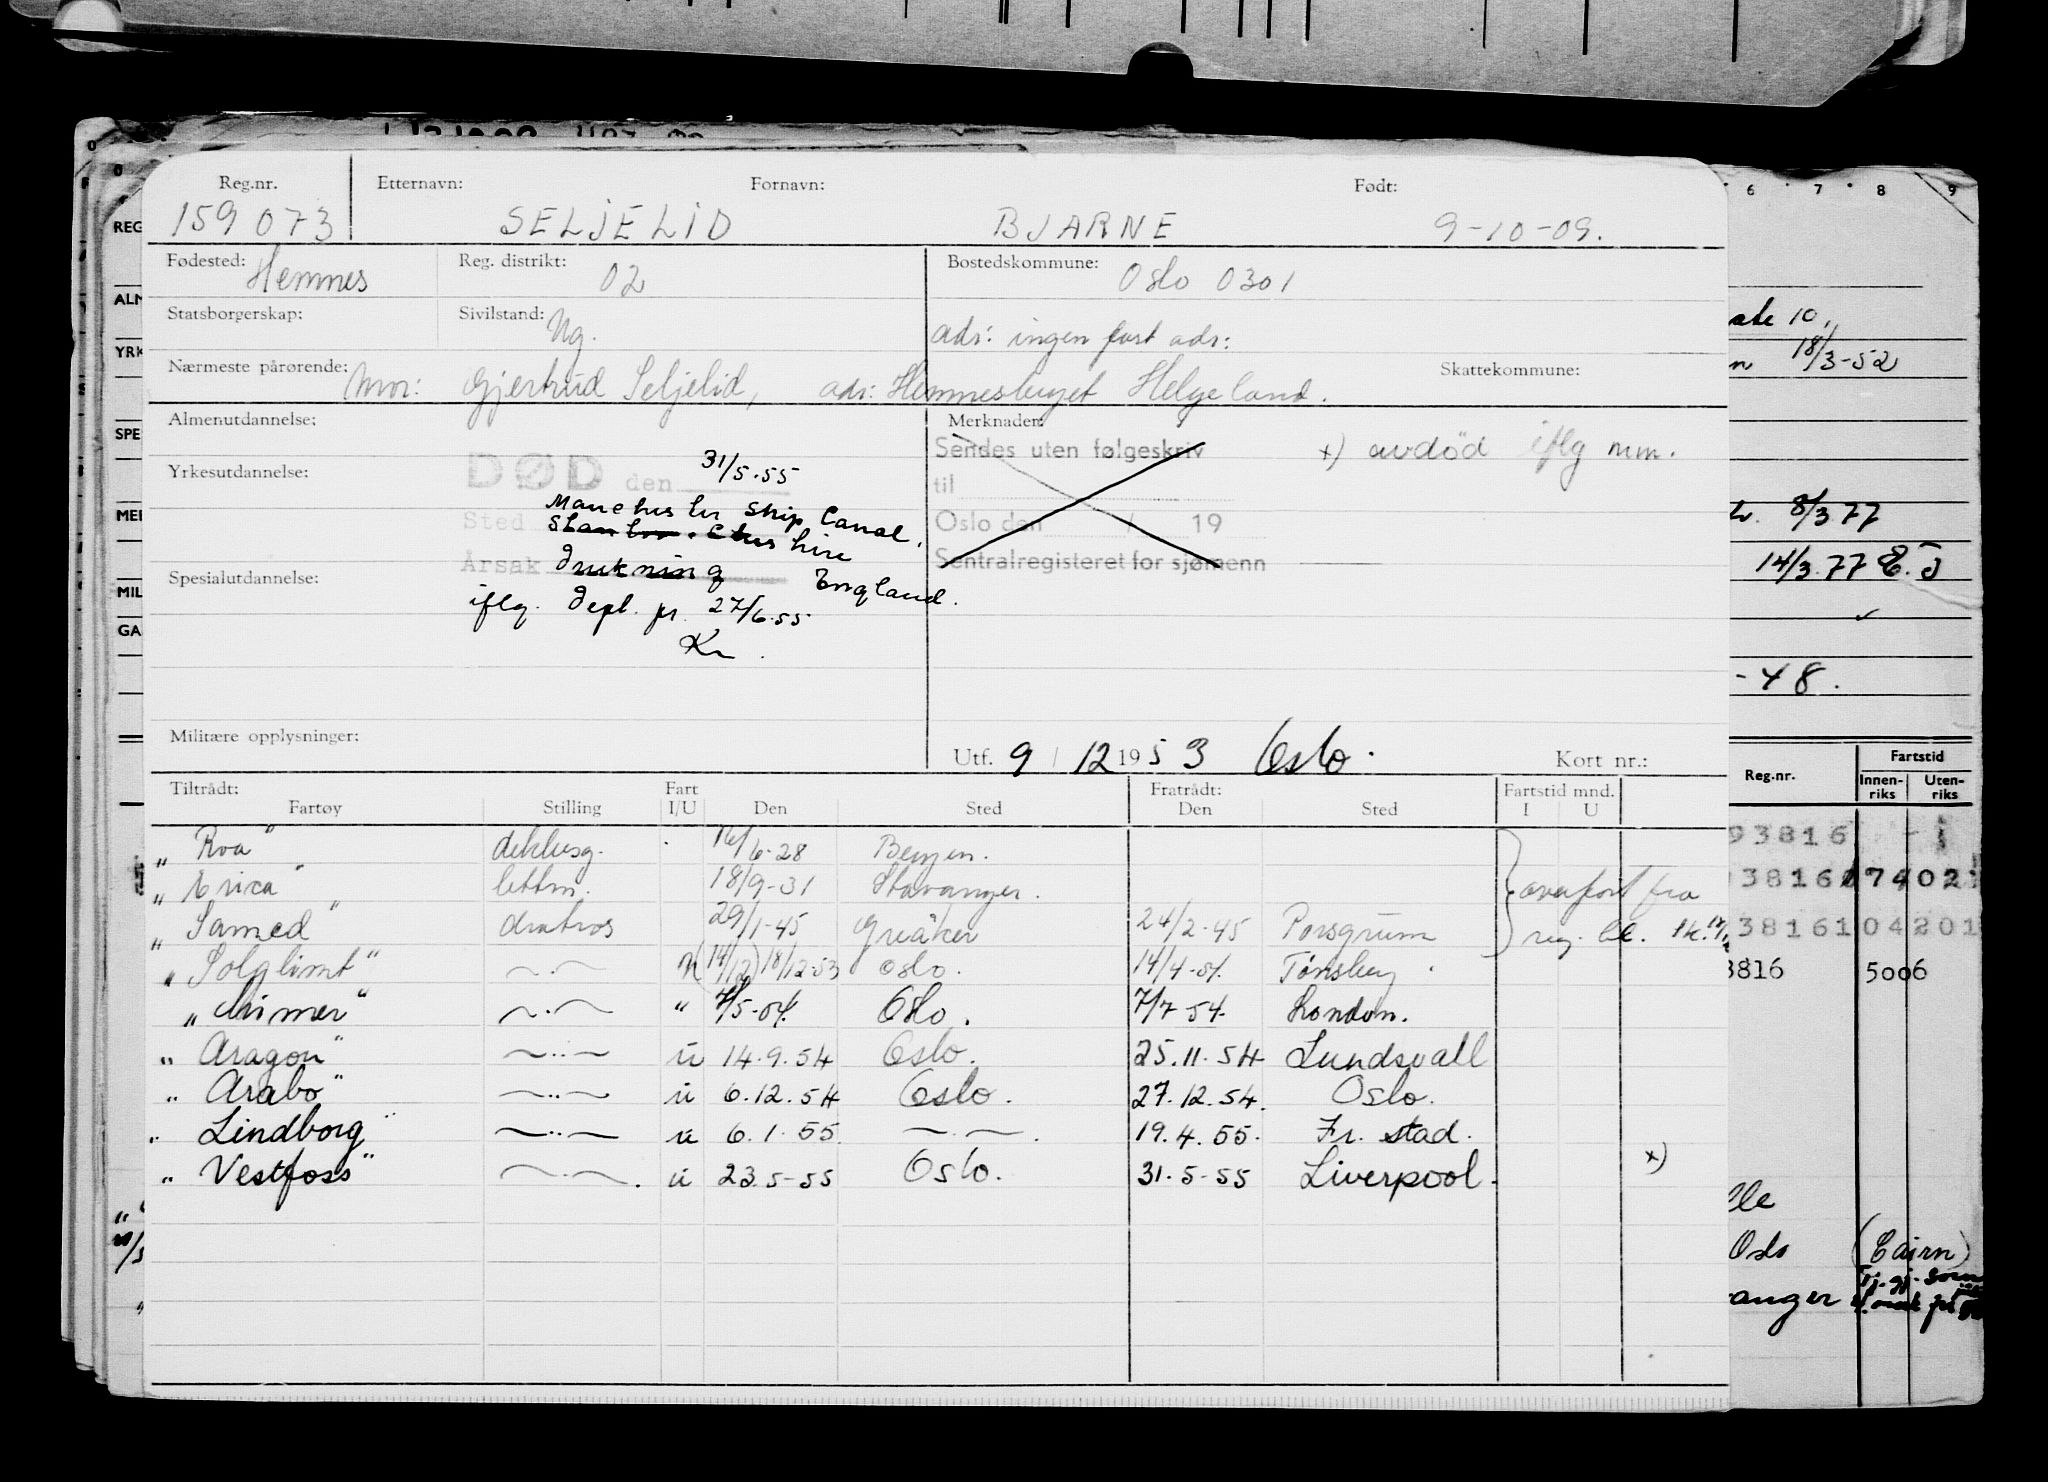 Reg.nr. Etternavn: Fornavn: Født:
159073 SELJELID BJARNE 9-10-09.
Fødested: Hemnes Reg. distrikt: 02 Bostedskommune: Oslo 0301
Statsborgerskap: Sivilstand: Ug. adr: ingen fast adr:
Nærmeste pårørende: Mor: Gjertrud Seljelid, adr: Hemnesberget Helgeland. Skattekommune:
Almenutdannelse: Merknader:
Sendes uten følgeskriv x) avdöd iflg mm.
DØD den 31/5.55
Yrkesutdannelse: til 19
Sted Manchester Ship Canal,
Oslo den / 19
Stan Cheshire
Årsak drukning England.
Sentralregisteret for sjømenn
Spesialutdannelse:
iflg. Dept. pr. 27/6.55
Kr.
Militære opplysninger: Utf. 9 / 12 1953 Oslo. Kort nr.:
Tiltrådt: Fart Fratrådt: Fartstid mnd.
Fartøy Stilling I/U Den Sted Den Sted I U
"Roa" 16/6-28 Bergen.
"Erica" lettm. 18/9-31 Stavanger. overfört fra
"Samed" 29/1-45 Greåker 24/2-45 Porsgrunn reg. bl.
"Solglimt" ~.~ N (14/12) 18/12-53 Oslo. 14/4-54. Tönsberg.
"Mimer" ~.~ " 7/5-54. Oslo. 7/7 54. London.
"Aragon" ~..~ u 14.9.54 Oslo. 25.11.54 Sundsvall
"Arabo" ~..~ u 6.12.54 Oslo. 27.12.54. Oslo.
"Lindborg" ~..~ u 6.1.55. ~.~. 19.4.55. Fr.stad.
"Vestfoss" ~.~. u 23.5-55 Oslo. 31.5-55 Liverpool. x)
REG
ALM
YRK
SPE
MER
MIL
GA
6 7 8 9
10,
18/3-52
8/3 77
14/3.77
-48.
Fartstid
Reg.nr. Innen-riks Uten-riks
93816
38161 7402
38161 04201
3816 5006
Oslo (Cairn)
anger